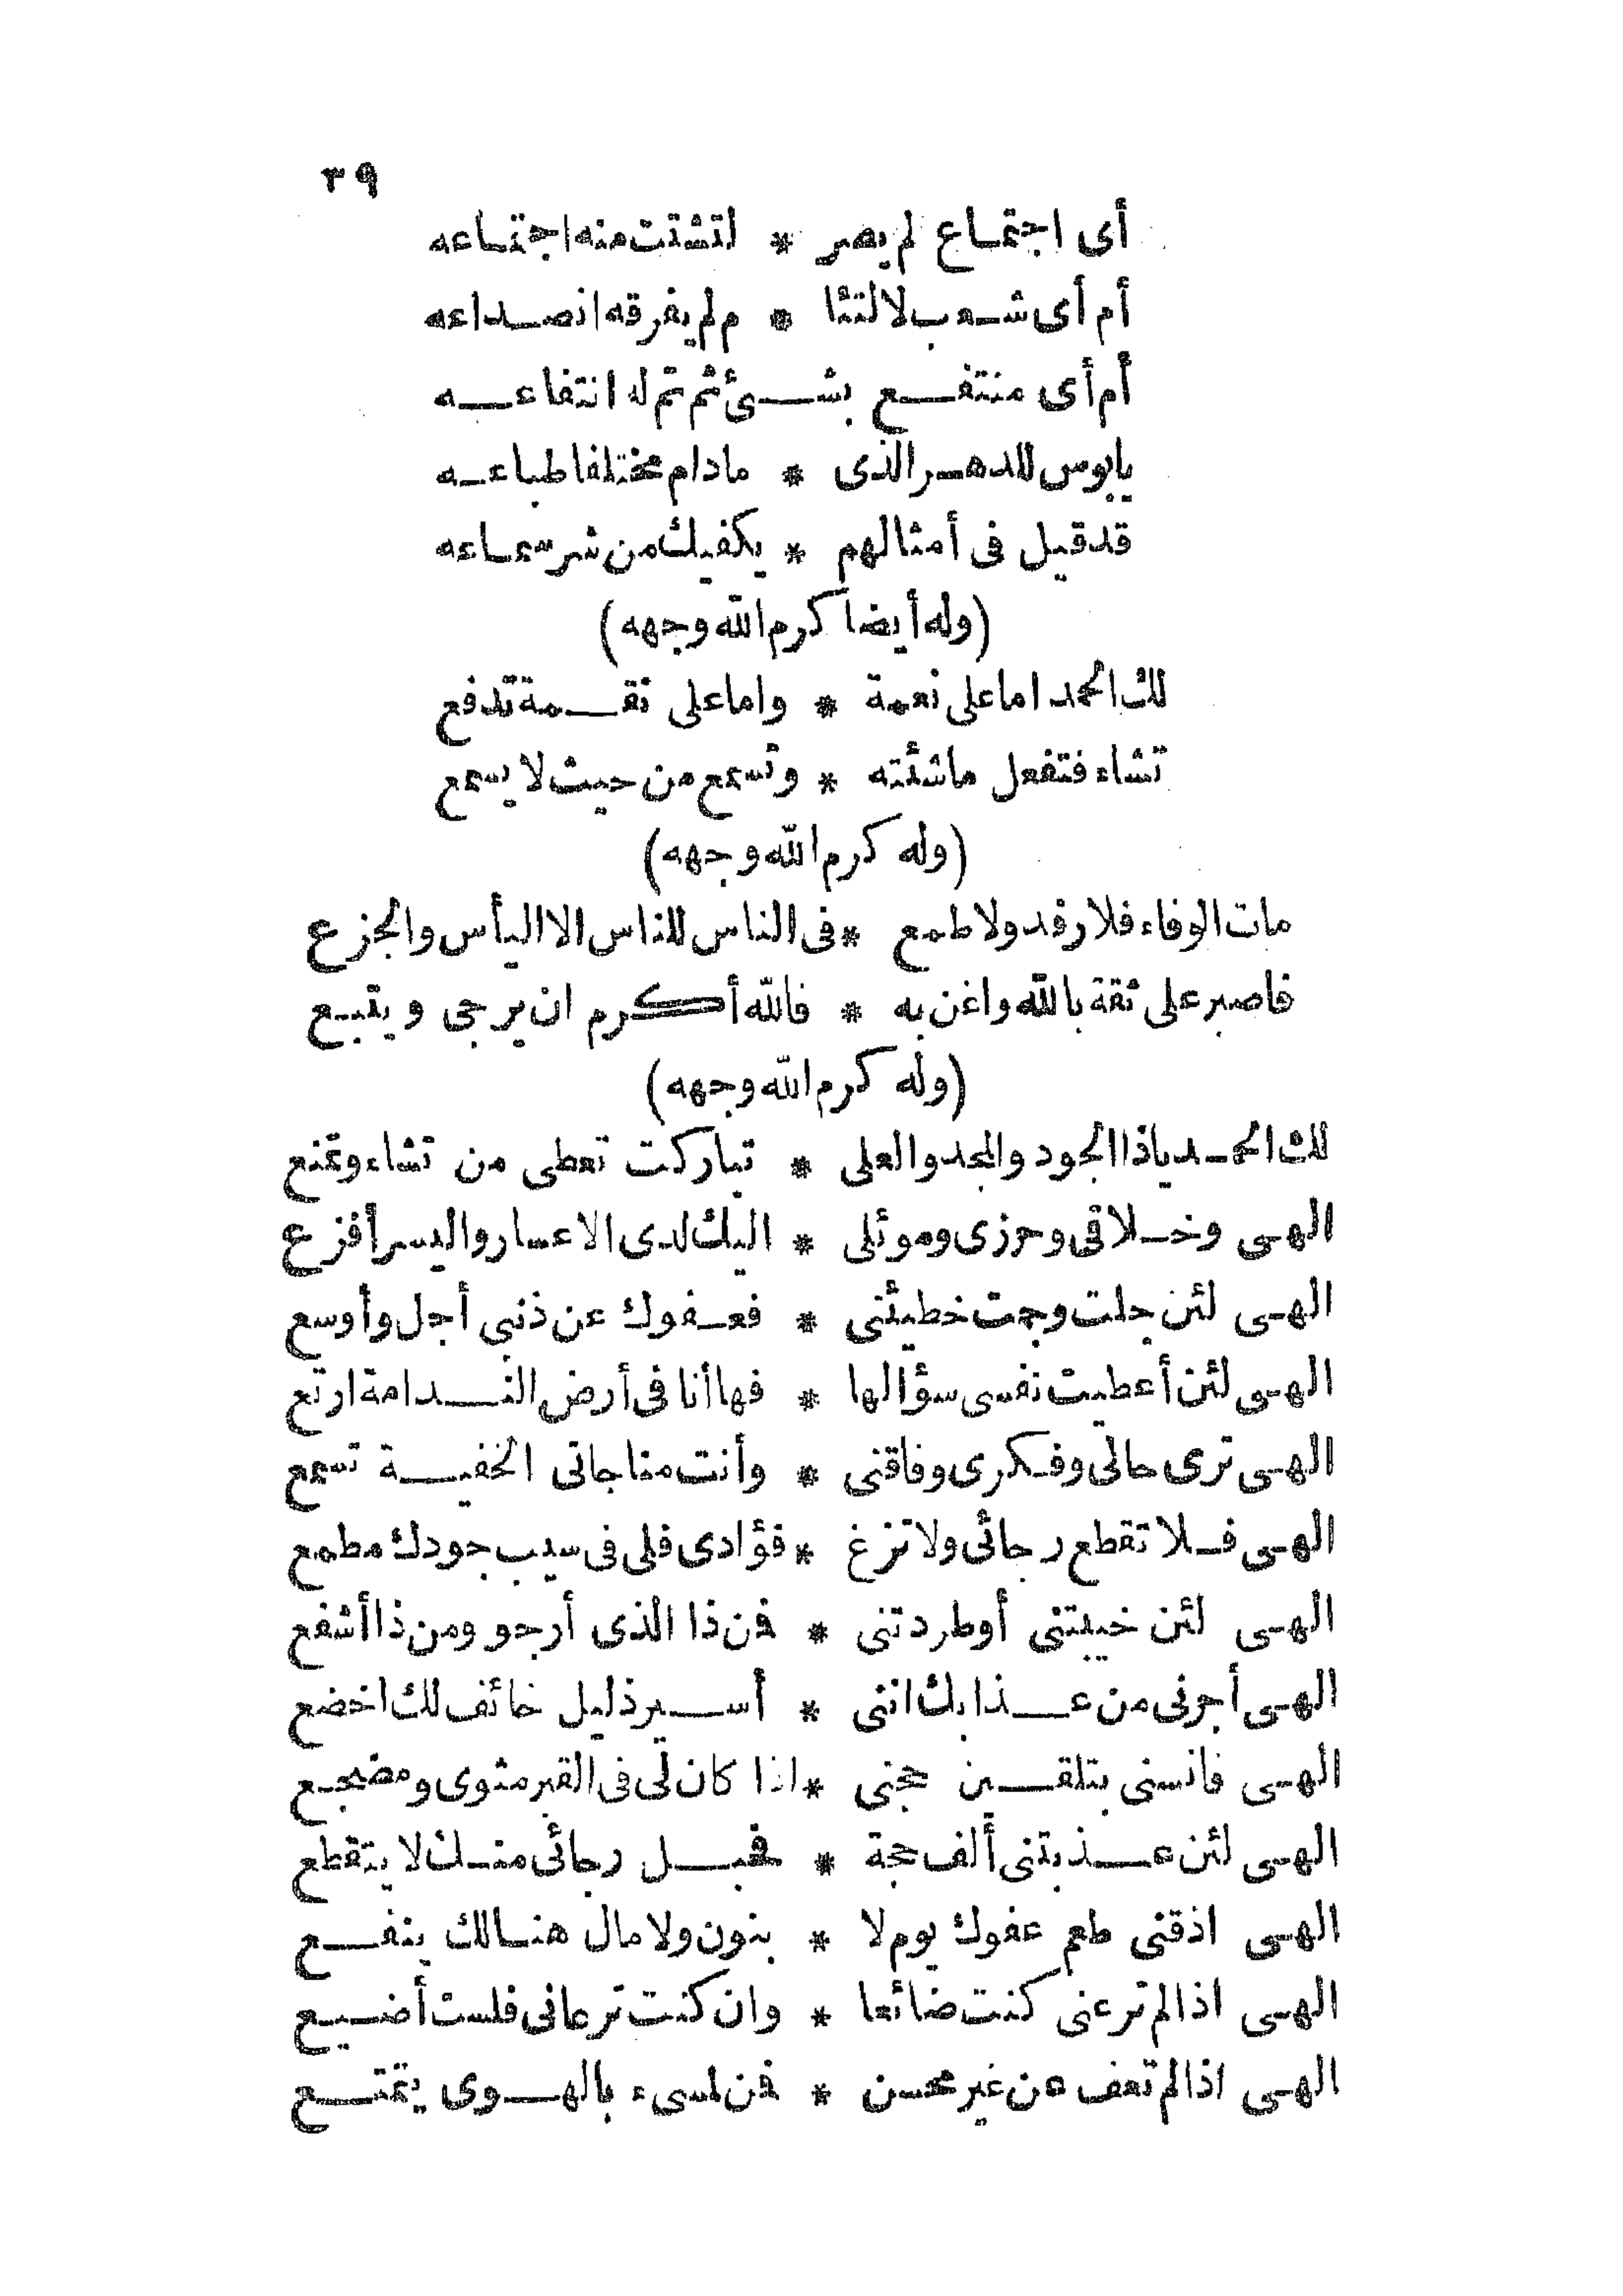 ٣٩
أى اجتماع لم يصر * لتشتت منه اجتماعه
أم أى شعب لالتئا * م لم يفرقه انصداعه
أم أى منتفع بشئ ثم تم له انتفاعه
يابوس للدهر الذى * مادام مختلفا طباعه
قد قيل فى أمثالهم * يكفيك من شر سماعه
(وله أيضا كرم الله وجهه)
لك الحمد اما على نعمة * واما على نقمة تدفع
تشاء فتفعل ماشئته * وتسمع من حيث لا يسمع
(وله كرم الله وجهه)
مات الوفاء فلا رفد ولا طمع * فى الناس للناس الا اليأس والجزع
فاصبر على ثقة بالله واغن به * فالله أكرم ان يرجى ويتبع
(وله كرم الله وجهه)
لك الحمد ياذا الجود والمجد والعلى * تباركت تعطى من تشاء وتمنع
الهى وخلاقى وحرزى وموئلى * اليك لدى الاعسار واليسر أفزع
الهى لئن جلت وجمت خطيئتى * فعفوك عن ذنبى أجل وأوسع
الهى لئن أعطيت نفسى سؤالها * فها أنا فى أرض الندامة ارتع
الهى ترى حالى وفكرى وفاقتى * وأنت مناجاتى الخفية تسمع
الهى فلا تقطع رجائى ولا تزغ * فؤادى فلى فى سيب جودك مطمع
الهى لئن خيبتنى أوطردتنى * فمن ذا الذى أرجو ومن ذا أشفع
الهى أجرنى من عذابك اننى * أسير ذليل خائف لك اخضع
الهى فانسنى بتلقين حجتى * اذا كان لى فى القبر مثوى ومضجع
الهى لئن عذبتنى ألف حجة * فحبل رجائى منك لا يتقطع
الهى اذقنى طعم عفوك يوم لا * بنون ولا مال هنالك ينفع
الهى اذا لم ترعنى كنت ضائعا * وان كنت ترعانى فلست أضيع
الهى اذا لم تعف عن غير محسن * فمن لمسىء بالهوى يتمتع